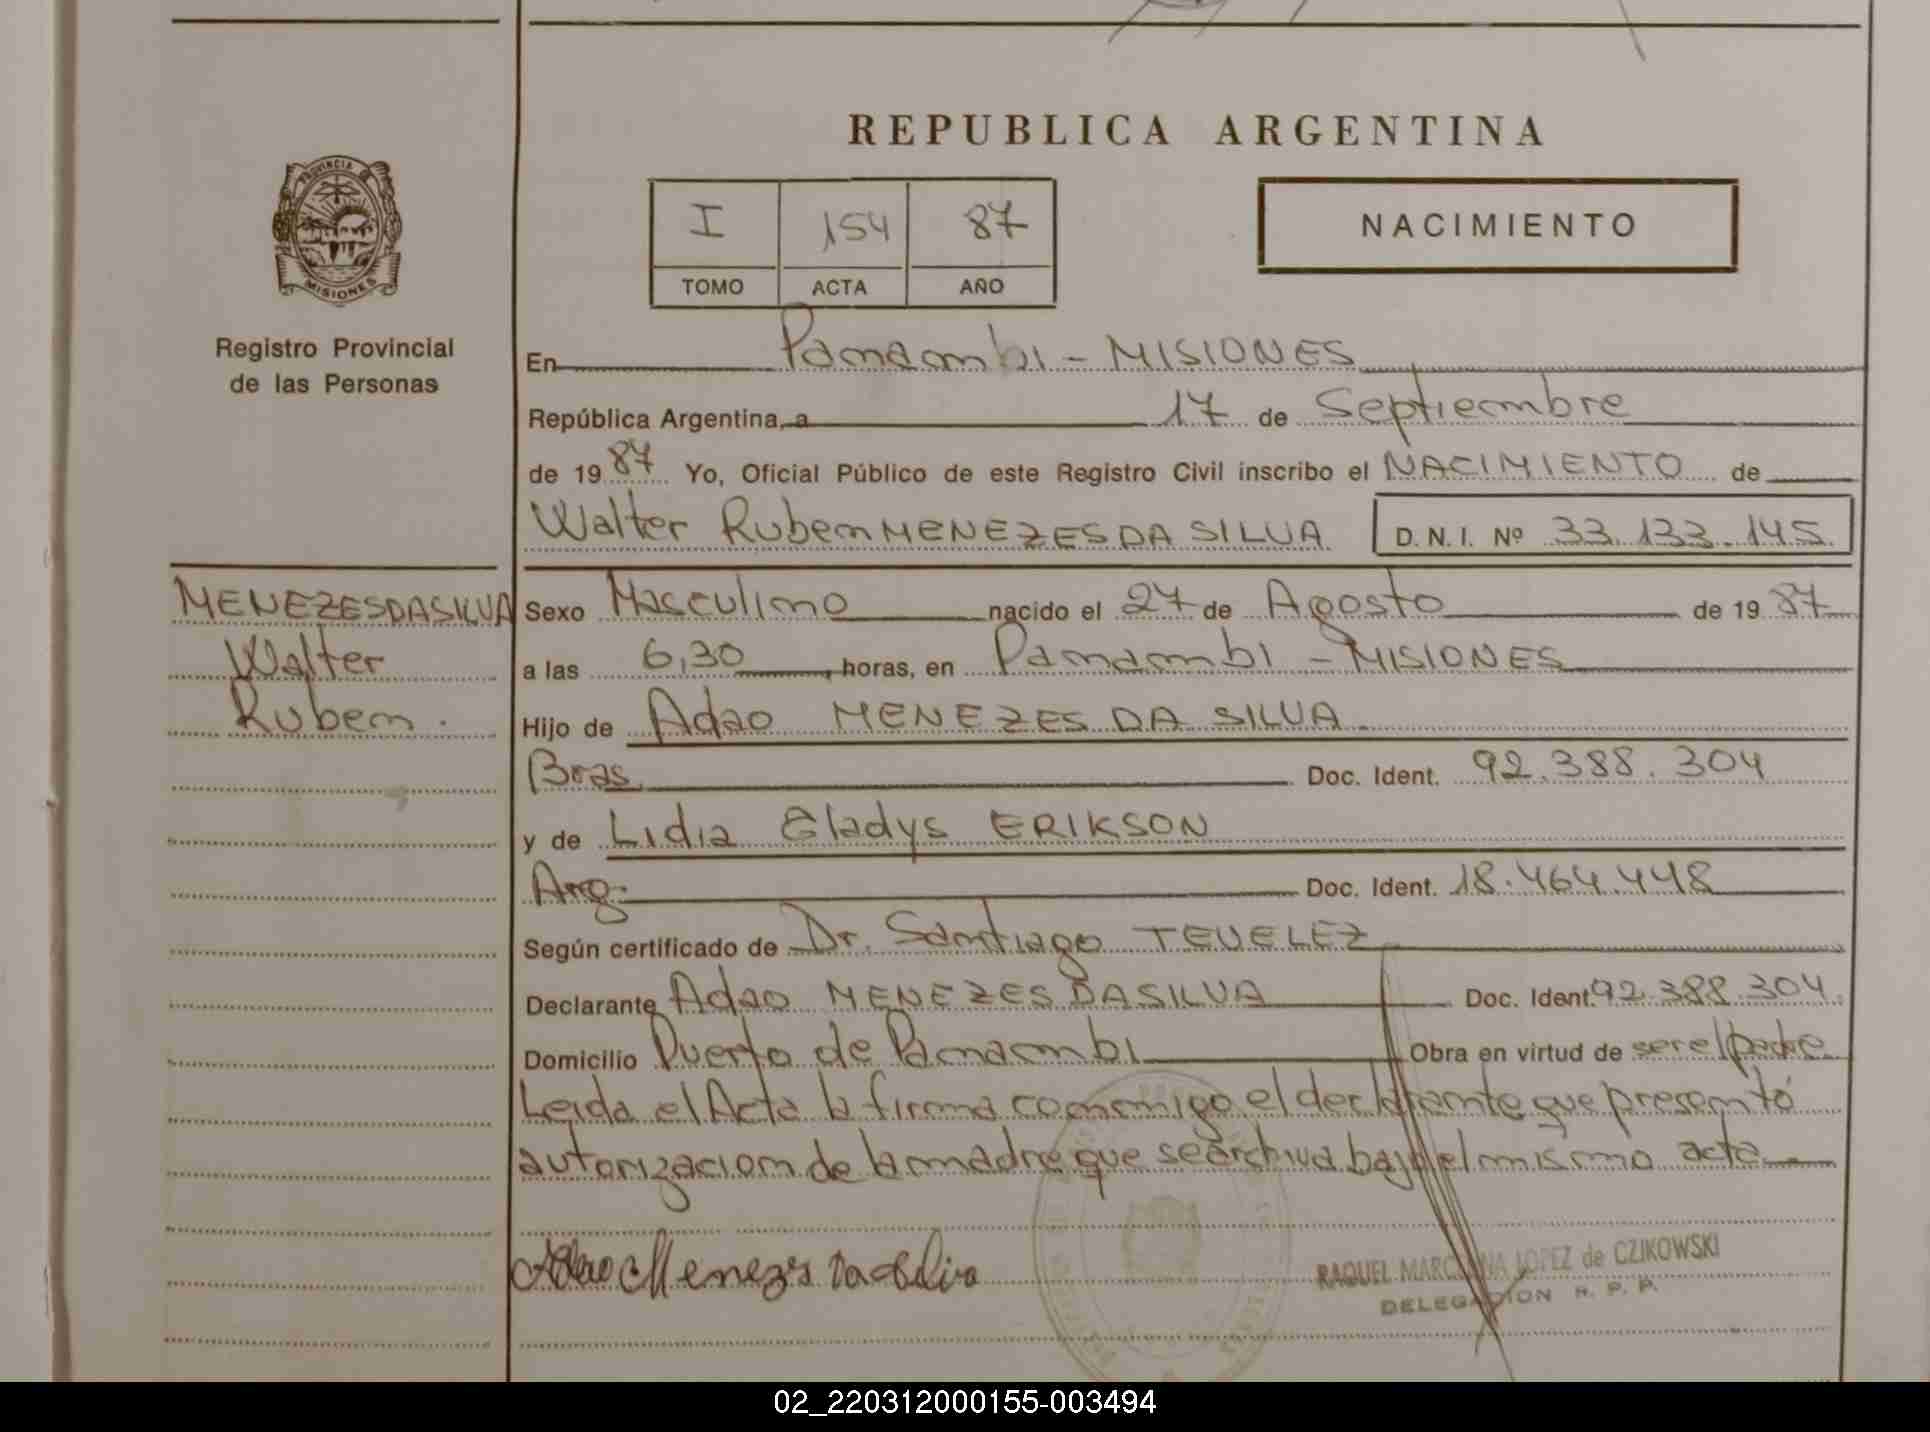 REPUBLICA ARGENTINA
PROVINCIA DE
MISIONES
Registro Provincial
de las Personas
I 154 87
TOMO ACTA AÑO
NACIMIENTO
En Panambi - MISIONES
República Argentina, a 17 de Septiembre
de 19 87 Yo, Oficial Público de este Registro Civil inscribo el NACIMIENTO de
Walter Ruben MENEZES DA SILVA D.N.I. Nº 33.133.145
MENEZES DA SILVA
Walter
Ruben.
Sexo Masculino nacido el 27 de Agosto de 19 87
a las 6,30 horas, en Panambi - MISIONES
Hijo de Adao MENEZES DA SILVA
Bras. Doc. Ident. 92.388.304
y de Lidia Gladys ERIKSON
Arg. Doc. Ident. 18.464.448
Según certificado de Dr. Santiago TEVELEZ
Declarante Adao MENEZES DA SILVA Doc. Ident. 92.388.304
Domicilio Puerto de Panambi Obra en virtud de ser el padre
Leida el Acta la firma conmigo el declarante que presentó
autorizacion de la madre que se archiva bajo el mismo acta
Adao Menezes da Silva
RAQUEL MARCIANA LOPEZ de CZIKOWSKI
DELEGACION R. P. P.
02_220312000155-003494